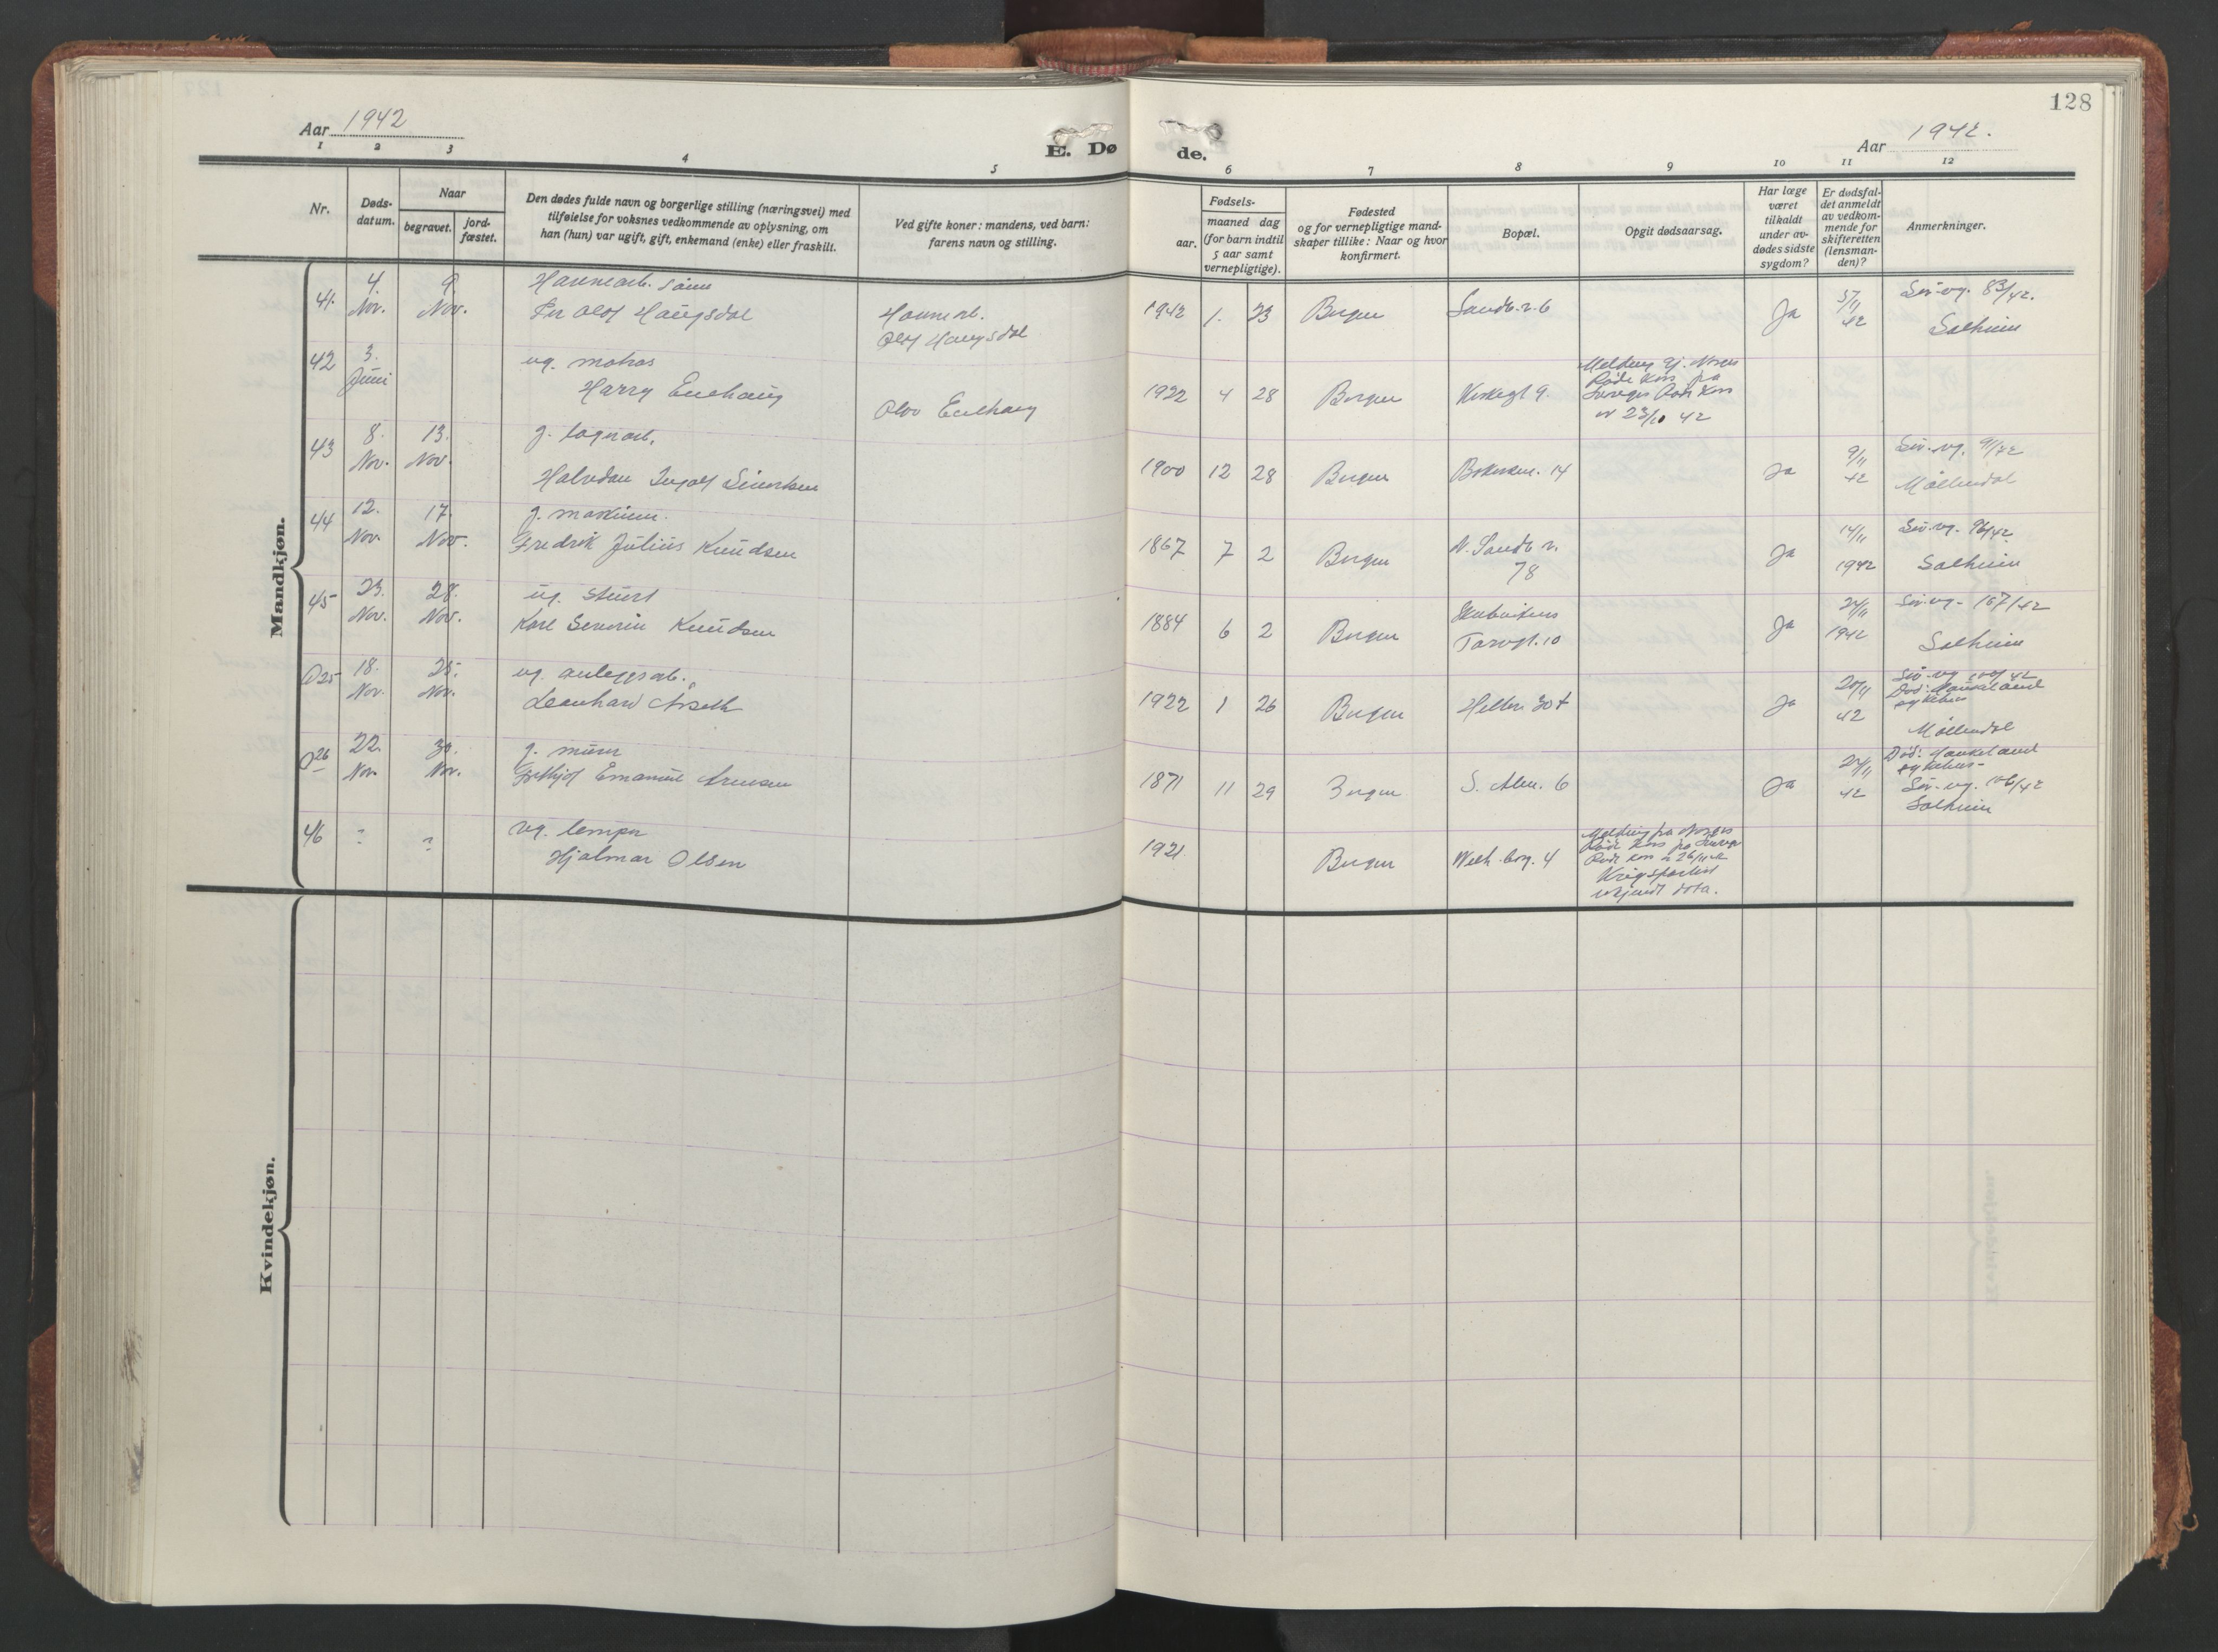 128
Aar 1942
E. Døde.
Aar 1942.
1 2 3 4 5 6 7 8 9 10 11 12
Nr.
Døds-datum.
Naar
begravet.
jord-fæstet.
Den dødes fulde navn og borgerlige stilling (næringsvei) med
tilføielse for voksnes vedkommende av oplysning, om
han (hun) var ugift, gift, enkemand (enke) eller fraskilt.
Ved gifte koner: mandens, ved barn:
farens navn og stilling.
Fødsels-
aar.
maaned dag
(for barn indtil
5 aar samt
vernepligtige).
Fødested
og for vernepligtige mand-
skaper tillike: Naar og hvor
konfirmert.
Bopæl.
Opgit dødsaarsag.
Har læge
været
tilkaldt
under av-
dødes sidste
sygdom?
Er dødsfal-
det anmeldt
av vedkom-
mende for
skifteretten
(lensman-
den)?
Anmerkninger.
Mandkjøn.
41. 4. Nov. 9. Nov. Havnearb. sønn
Per Olof Haugsdal
Havnearb.
Olof Haugsdal
1942 1. 23 Bergen Sandv.v. 6 Ja 5/11 42 83/42.
Solheim
42 3. Juni ug. matros
Harry Enehaug
Enehaug
1922 4 28 Bergen 9.
Melding gj. Norges
Røde Kors fra
Sveriges Røde Kors
23/10 42
43 8. Nov. 13. Nov. g. lagerarb.
Halvdan Ingolf Sivertsen
1900 12 28 Bergen 14 Ja 9/11 42
Møllendal
44 12. Nov. 17. Nov. g. maskinm.
Fredrik Julius Knudsen
1867 7 2 Bergen N. Sandv. v.
78 Ja 14/11 1942 96/42
Solheim
45 23. Nov. 28. Nov. ug. stuert
Karl Severin Knudsen
1884 6 2 Bergen Skuteviks
Torvgt. 10 Ja 24/11 1942 107/42
Solheim
D25 18. Nov. 25. Nov. ug. anleggsarb.
Leonhard Årseth
1922 1 26 Bergen Ja 20/11 42 100/42
Død: Haukeland
sykehus
Møllendal
D26 22. Nov. 30. Nov. g. murer
Fritjof Emanuel Arnesen
1871 11 29 Bergen S. Alm. 6 Ja 24/11 42 Død: Haukeland
sykehus
106/42
Solheim
46 ? ? ug. lemper
Hjalmar Olsen
1921 Bergen 4
Melding fra Norges
Røde Kors fra
Røde Kors 26/11
Krigsforlist
ukjendt dato.
Kvindekjøn.